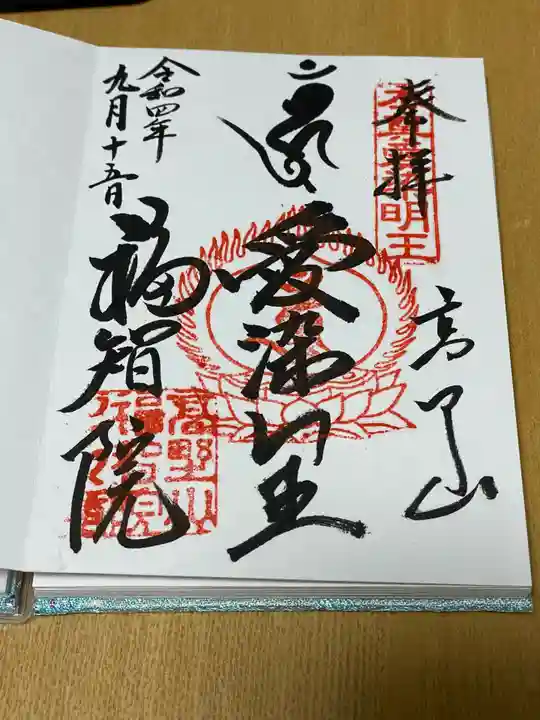 奉拝
高野山
愛染明王
福智院
令和四年
九月十五日
高野山